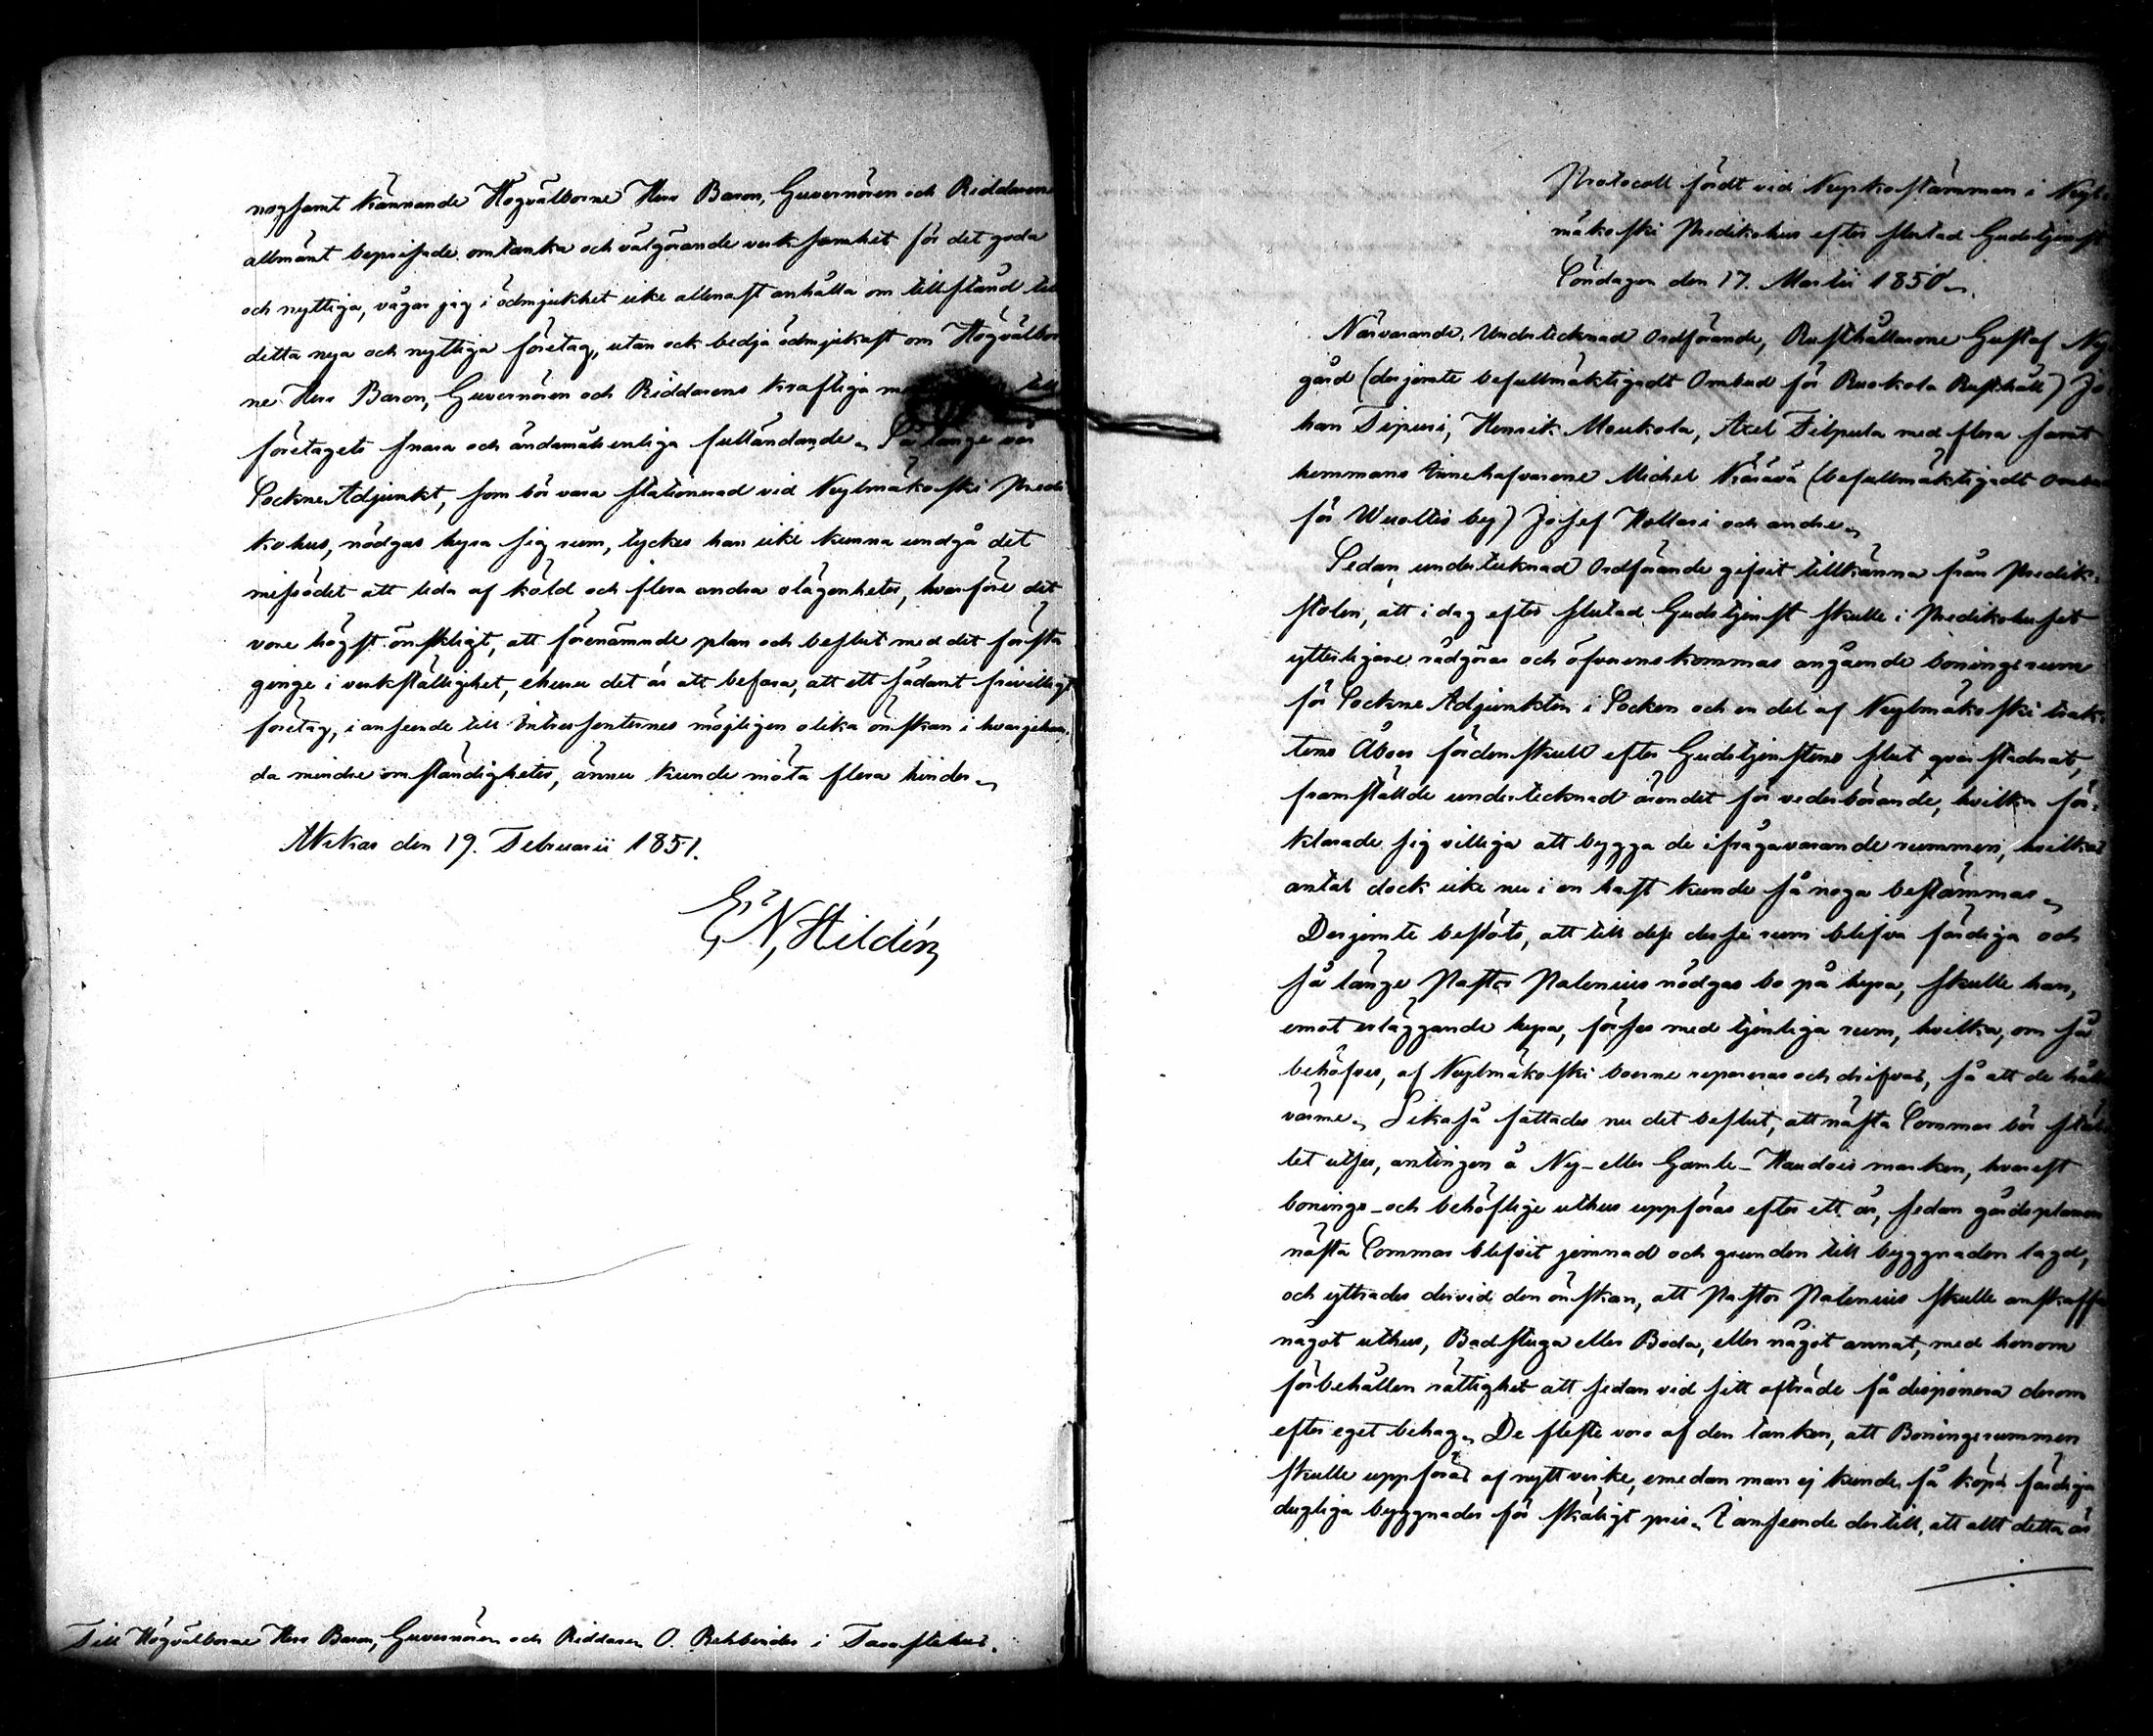 nogsamt kännande Högvälborne Herr Baron, Guvernören och Riddarens
allmänt beprisade omtanka och välgörande verksamhet för det goda
och nyttiga, vågar jag i ödmjukhet icke allenast anhålla om tillstånd till
detta nya och nyttiga företag, utan ock bedja ödmjukast om Högvälbor
ne Herr Baron, Guvernören och Riddarens kraftiga till
företagets snara och ändamålsenliga fulländande. Så länge vår
Sockne Adjunkt, som bör vara stationerad vid Kylmäkoski Predi
kohus, nödgas hyra sig rum, tyckes han icke kunna undgå det
missödet att lida af köld och flera andra olägenheter, hvarföre det
vore högst önskligt, att förenämnde plan och beslut med det första
ginge i verkställighet, ehuru det är att befara, att ett sådant frivilligt
företag, i anseende till Intressenternes möjligen olika önskan i hvarjehan-
da mindre omständigheter, ännu kunde möta flera hinder.
Akkas den 19. Februarii 1851.
E. N. Hildén
Till Högvälborne Herr Baron, Guvernören och Riddaren O. Rehbinder i Tavastehus.
Protocoll fördt vid Kyrkostämman i Kyl-
mäkoski Predikohus efter slutad Gudstjenst
Söndagen den 17. Martii 1850.
Närvarande, Undertecknad Ordförande, Rusthållarene Gustaf Ny
gård (derjemte befullmäktigadt Ombud för Ruokola Rusthåll) Jo
han Sipuri, Henrik Moukola, Axel Filpula med flera samt
hemmans innehafvarene Michel Kärävä (befullmäktigadt Ombud
för Wuoltis by) Josef Hollari och andre.
Sedan undertecknad Ordförande gifvit tillkänna från Predik-
stolen, att i dag efter slutad Gudstjenst skulle i Predikohuset
ytterligare rådgöras och öfverenskommas angående boningsrum
för Sockne Adjunkten i Socken och en del af Kylmäkoski trak-
tens Åboer fördenskull efter Gudstjenstens slut qvarstadnat,
framställde undertecknad ärendet för vederbörande, hvilka för-
klarade sig villiga att bygga de ifrågavarande rummen, hvilkas
antal dock icke nu i en hast kunde så noga bestämmas.
Derjemte beslöts, att till dess desse rum blifva färdiga och
så länge Pastor Palenius nödgas bo på hyra, skulle han,
emot erläggande hyra, förses med tjenliga rum, hvilka, om så
behöfves, af Kylmäkoski boerne repareras och drifvas, så att de hålla
värme. Likaså fattades nu det beslut, att nästa Sommar bör stäl
let utses, antingen å Ny- eller Gamle- Haudois marken, hvarest
bonings- och behöflige uthus uppföras efter ett år, sedan gårdsplanen
nästa Sommar blifvit jemnad och grunden till byggnaden lagd,
och yttrades dervid den önskan, att Pastor Palenius skulle anskaffa
något uthus, Badstuga eller Boda, eller något annat, med honom
förbehållen rättighet att sedan vid sitt afträde få disponera derom
efter eget behag. De fleste voro af den tanken, att Boningsrummen
skulle uppföras af nytt virke, emedan man ej kunde få köpa färdiga
dugliga byggnader för skäligt pris. I anseende dertill, att allt detta är